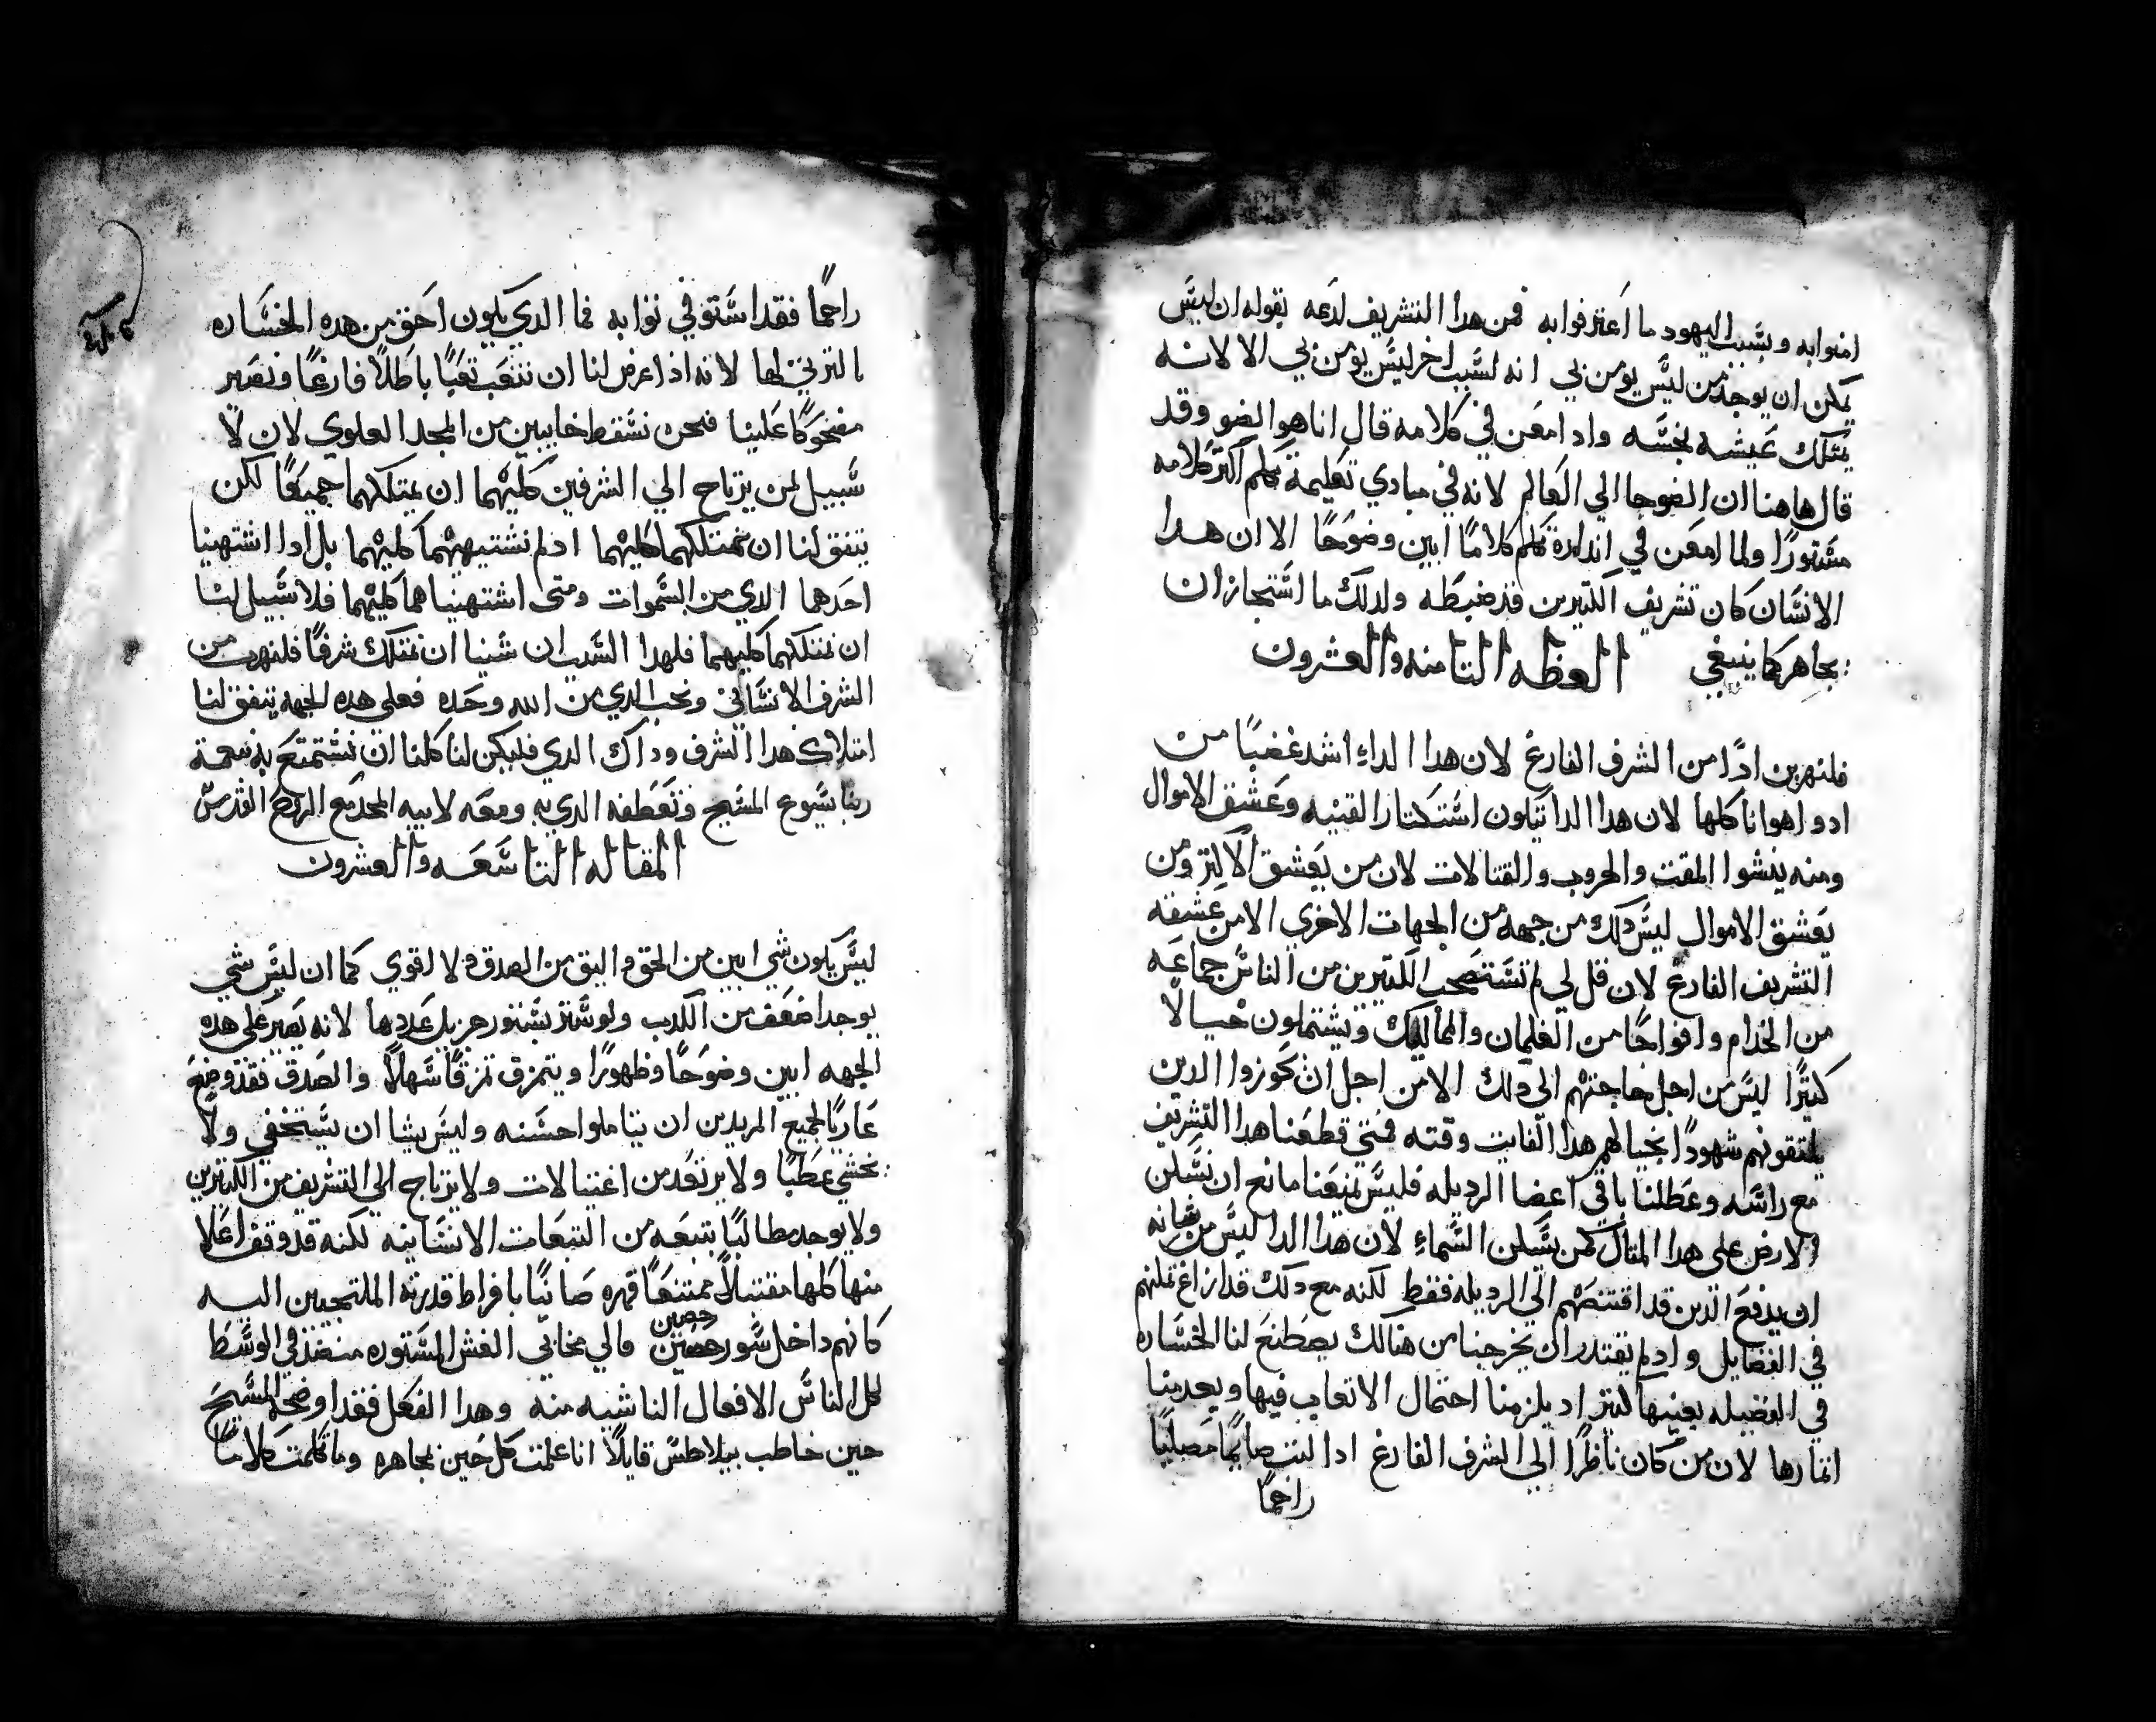 امنوا به وبسبب اليهود ما اعترفوا به فمن هدا التشريف لدعه بقوله ان ليس
يمكن ان يوجد من ليس يومن بي انه لسبب اخر ليس يومن بي الا لانه
يمتلك عيشه بخسه واد امعن في كلامه قال انا هو الضو وقد
قال هاهنا ان الضو جا الي العالم لانه في مبادي تعليمه تكلم اكتر كلامه
مستورًا ولما امعن في انداره تكلم كلامًا ابين وضوحًا الا ان هدا
الانسان كان تشريف الكتيرين قد ضبطه ولدلك ما استجاز ان
يجاهر كما ينبغي العظه التامنه والعشرون
فلنهربن ادًا من الشرف الفارغ لان هدا الداء اشد غضبًا من
ادوا هوانا كلها لان هدا الدا يتكون استكتار القنيه وعشق الاموال
ومنه ينشوا المقت والحروب والقتالات لان من يعشق الاكتر ومن
يعشق الاموال ليس دلك من جهه من الجهات الاخري الا من عشقه
التشريف الفارغ لان قل لي لم تستصحب الكتيرين من الناس جماعه
من الخدام وافواجًا من الغلمان والمماليك ويشتملون خيالاً
كتيرًا ليس من اجل حاجتهم الي دلك الا من اجل ان يحوزوا الدين
يلتقونهم شهودًا بخيالهم هدا الفايت وقته فمتى قطعنا هدا التشريف
مع راسه وعطلنا باقي اعضا الرديله فليس يمنعنا مانع ان نسكن
الارض على هدا المتال كمن يسكن السماء لان هدا الدا ليس من شانه
ان يدفع الدين قد اقتنصهم الي الرديله فقط لكنه مع دلك قد ازاغ تملنهم
في الفضايل واد لم يقتدر ان يخرجنا من هنالك يصطنع لنا الخساره
في الفضيله بعينها اكتر اد يلزمنا احتمال الاتعاب فيها ويعدمنا
اتمارها لان من كان ناظرًا الي الشرف الفارغ ادا كنت صايمًا مصليًا
راحمًا
راحمًا فقد استوفي توابه فما الدي يكون احق من هده الخساره
بالترتي لها لانه اذا عرض لنا ان نتعب تعبًا باطلاً فارغًا ونصير
مضحوكًا علينا فنحن نسقط خايبين من المجد العلوي لان لا
سبيل لمن يرتاح الي الشرفين كليهما ان يمتلكهما جميعًا لكن
يتفق لنا ان نمتلكهما كليهما اد لم نشتهيهما كليهما بل ادا اشتهينا
احدهما الدي من السموات ومتى اشتهيناهما كليهما فلا سبيل لنا
ان نمتلكهما كليهما فلهدا السبب ان شينا ان نمتلك شرفًا فلنهرب من
الشرف الانساني ونحب الدي من الله وحده فعلى هده الجهه يتفق لنا
امتلاك هدا الشرف وداك الدي فليكن لنا كلنا ان نستمتع به بنعمة
ربنا يسوع المسيح وتعطفه الدي به ومعه لابيه المجد مع الروح القدس
المقاله التاسعه والعشرون
ليس يكون شي ابين من الحق واليق من الصدق ولا اقوي كما ان ليس شي
يوجد اضعف من الكدب ولو ستر بستور جزيل عددها لانه يصير على هده
الجهه ابين وضوحًا وظهورًا ويتمزق تمزقًا سهلاً والصدق فقد وضع
عاريًا لجميع المريدين ان يتاملوا حسنه وليس يشا ان يستخفي ولا
يخشي عطبًا ولا يرتعد من اغتيالات ولا يرتاح الي التشريف من الكتيرين
ولا يوجد مطالبًا بتبعه من التبعات الانسانيه لكنه قد وقف اعلا
منها كلها مقتبلاً ممتنعًا قهره صاينًا بافراط قدرته الملتجيين اليه
كانهم داخل سور حصين حصين والي مخابي الغش المستوره منضد في الوسط
لكل الناس الافعال الناشبه منه وهدا الفعل فقد اوضحه المسيح
حين خاطب بيلاطس قايلاً انا علمت كل حين مجاهره وما تكلمت كلامًا